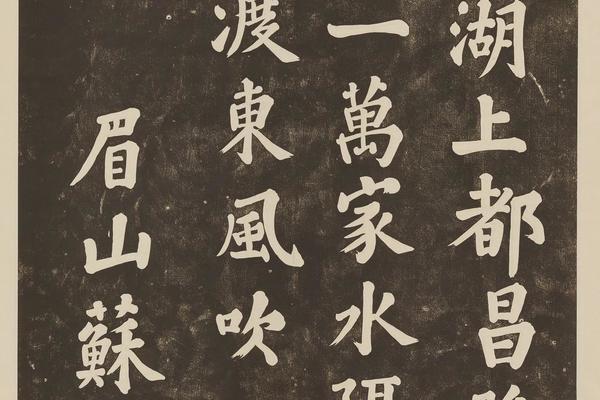 湖上都昌
一萬家水隔
渡東風吹
眉山蘇